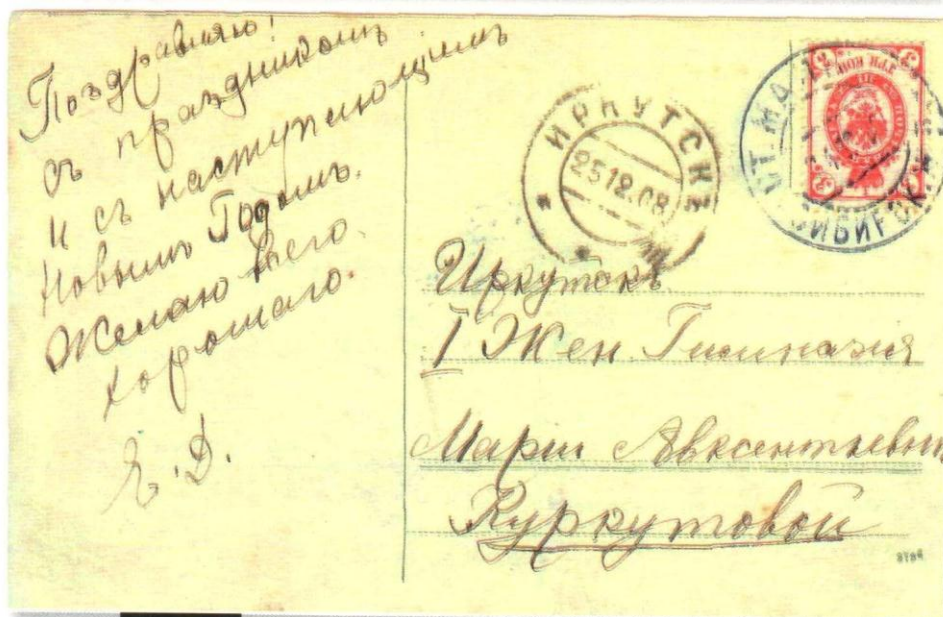 Поздравляю!
съ праздникомъ
и съ наступающимъ
Новымъ Годомъ.
Желаю всего
хорошаго.
Е. Д.
ИРКУТСКЪ
25 12.08
ТРИ КОП
3 3
3 3
СИБИРСК
Иркутскъ
I Жен. Гимназия
Марии Авксентьевн
Куркутовой